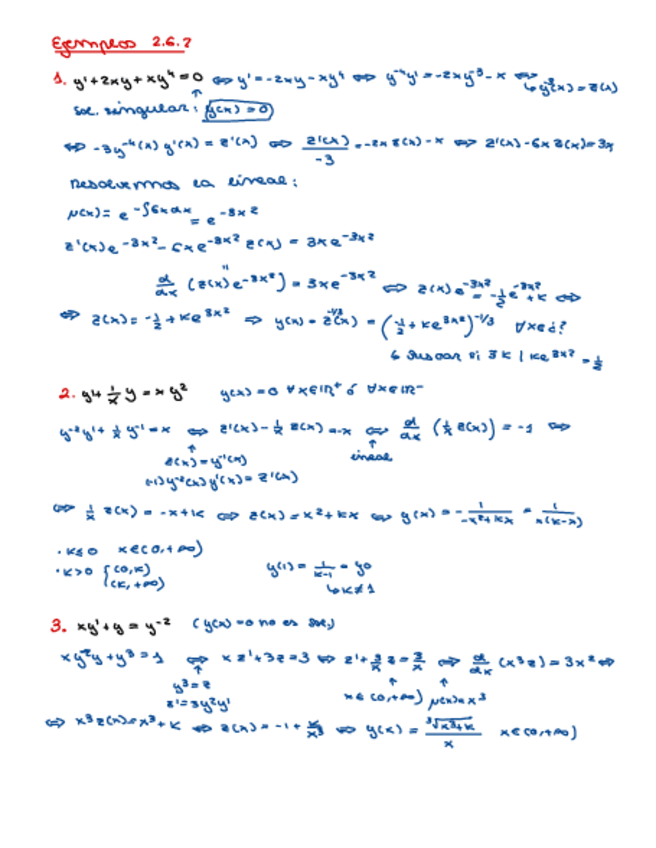 Ejemplos 2.6.7
1. y' + 2xy + xy⁴ = 0 ⇔ y' = -2xy - xy⁴ ⇔ y⁻⁴y' = -2xy⁻³ - x ⇔
↳ y⁻³(x) = z(x)
Sol. singular: y(x) = 0
⇔ -3y⁻⁴(x) y'(x) = z'(x) ⇔ z'(x)/-3 = -2x z(x) - x ⇔ z'(x) - 6x z(x) = 3x
Resolvemos la lineal:
μ(x) = e^(-∫6xdx) = e^(-3x²)
z'(x)e^(-3x²) - 6xe^(-3x²) z(x) = 3xe^(-3x²)
"
d/dx (z(x)e^(-3x²)) = 3xe^(-3x²) ⇔ z(x)e^(-3x²) = -1/2 e^(-3x²) + K ⇔
⇔ z(x) = -1/2 + Ke^(3x²) ⇒ y(x) = z^(-1/3)(x) = (-1/2 + Ke^(3x²))^(-1/3) ∀x∈¿?
↳ Buscar si ∃K | Ke^(3x²) = 1/2
2. y' + 1/x y = xy² y(x) = 0 ∀x∈ℝ⁺ ó ∀x∈ℝ⁻
y⁻²y' + 1/x y⁻¹ = x ⇔ z'(x) - 1/x z(x) = -x ⇔ d/dx (1/x z(x)) = -1 ⇔
z(x) = y⁻¹(x) lineal
(-1)y⁻²(x)y'(x) = z'(x)
⇔ 1/x z(x) = -x + K ⇔ z(x) = -x² + Kx ⇔ y(x) = 1/(-x² + Kx) = 1/(x(K-x))
· K≤0 x∈(0,+∞)
· K>0 { (0,K)
(K,+∞)
y(1) = 1/(K-1) = y0
↳ K≠1
3. xy' + y = y⁻² (y(x) = 0 no es sol.)
xy²y' + y³ = 1 ⇔ xz' + 3z = 3 ⇔ z' + 3/x z = 3/x ⇔ d/dx (x³z) = 3x² ⇔
y³ = z x∈(0,+∞) μ(x) = x³
z' = 3y²y'
⇔ x³z(x) = x³ + K ⇔ z(x) = -1 + K/x³ ⇔ y(x) = ³√(x³+K)/x x∈(0,+∞)